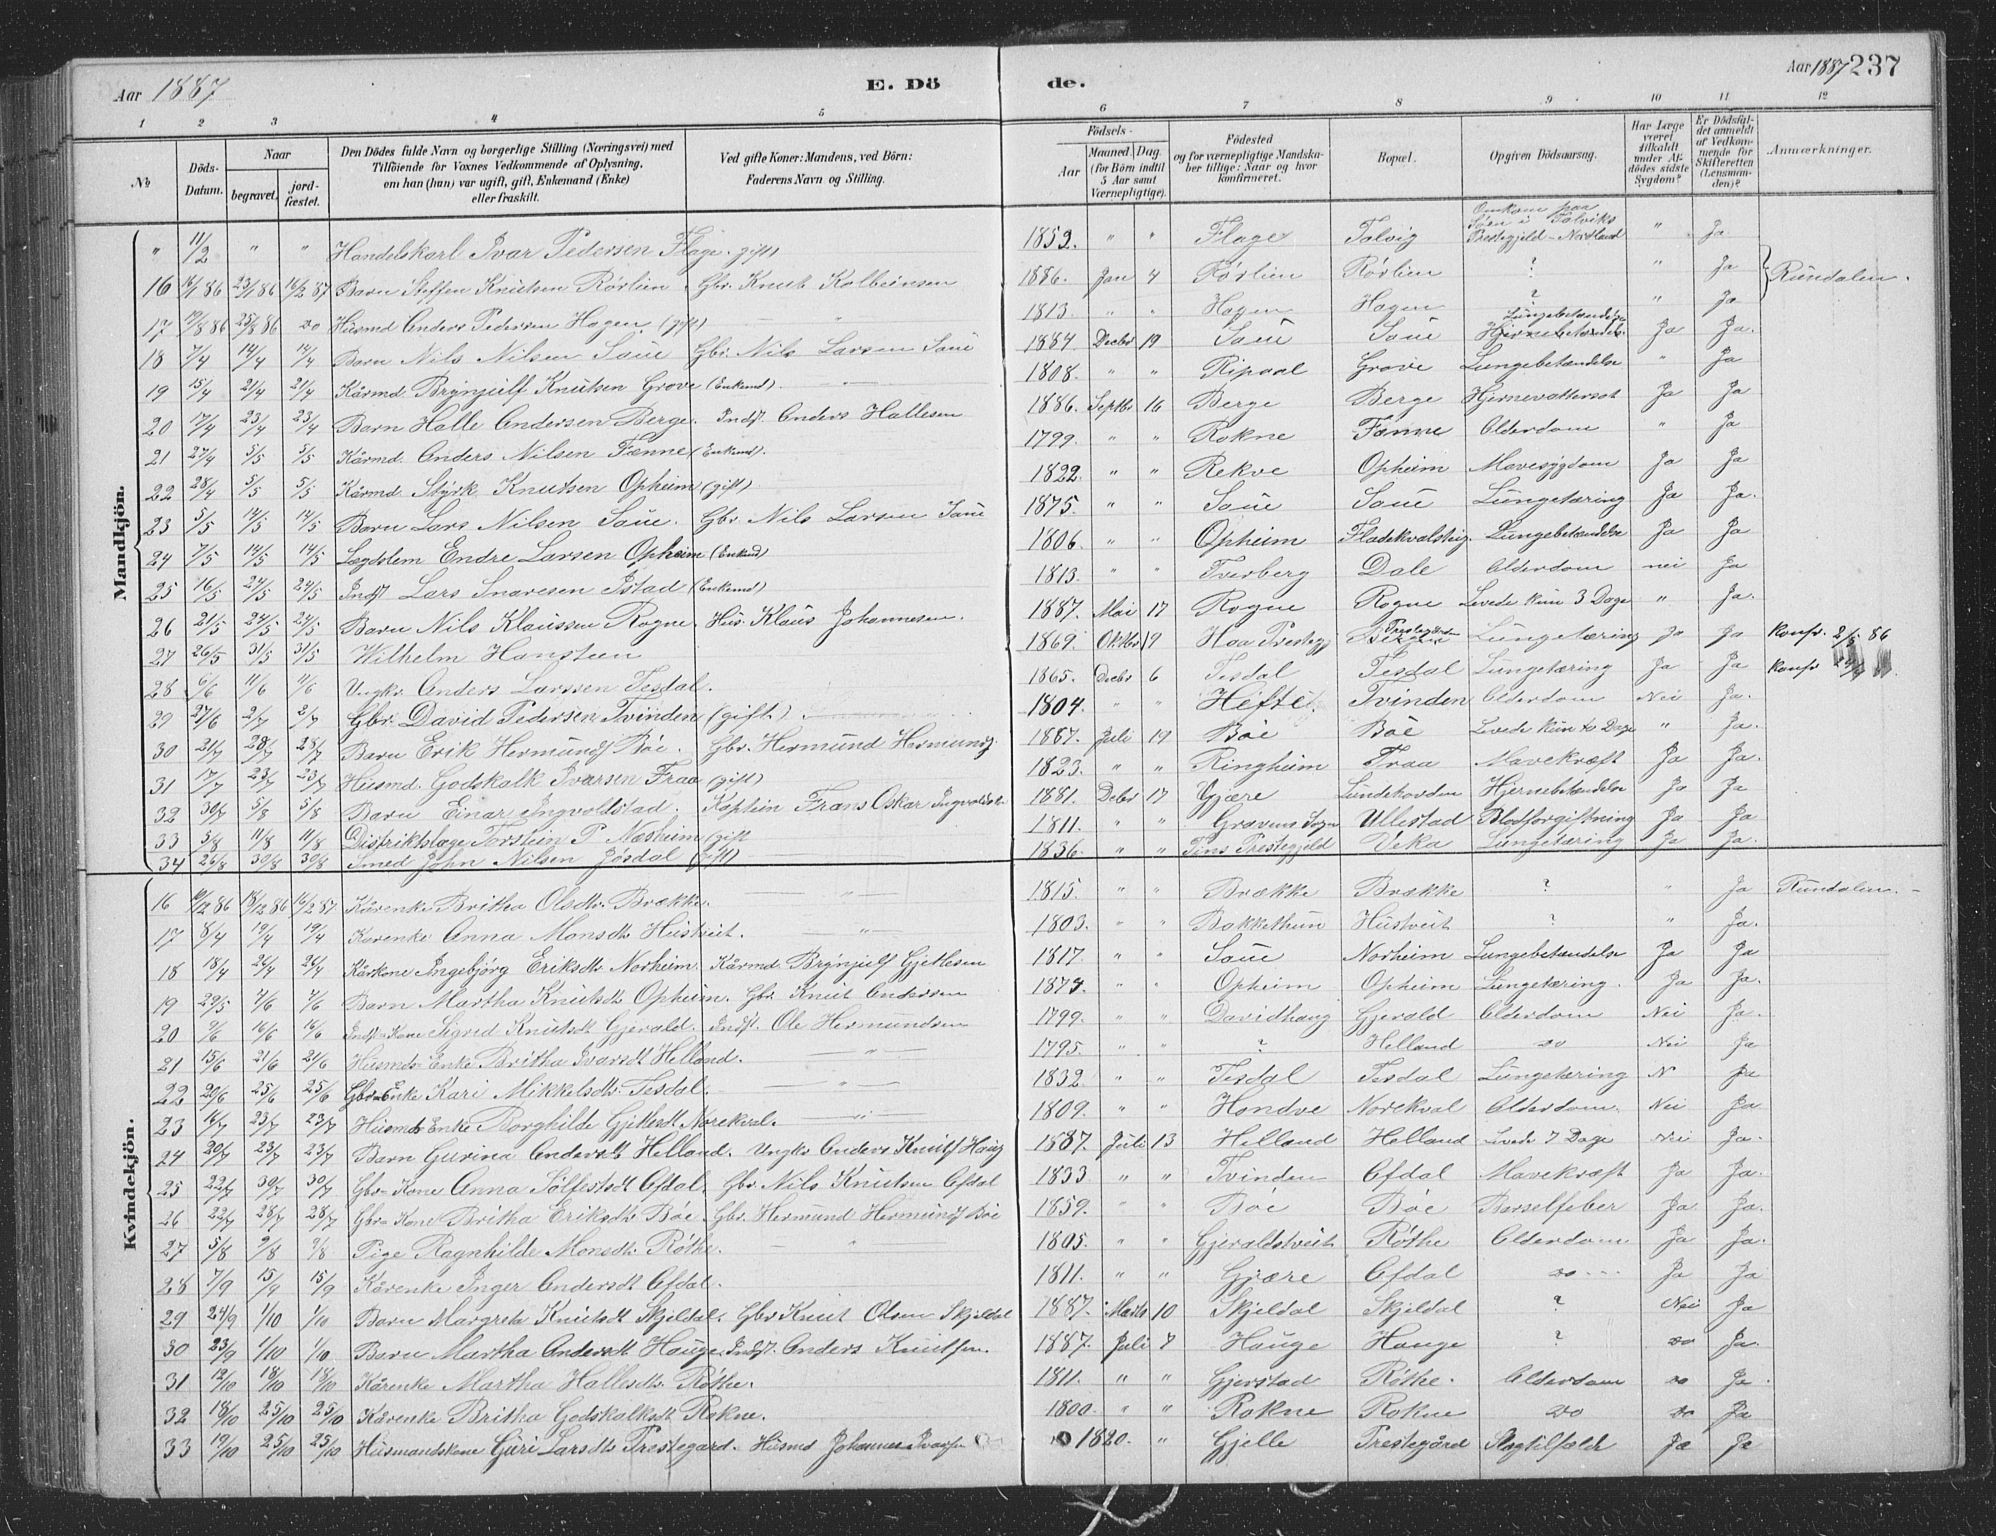 Aar 1887
E. Dö
de.
Aar 1887 237
1 2 3 4 5 6 7 8 9 10 11 12
No
Döds-Datum.
Naar
begravet.
jord-fæstet.
Den Dödes fulde Navn og borgerlige Stilling (Næringsvei) med
Tilföiende for Voxnes Vedkommende af Oplysning,
om han (hun) var ugift, gift, Enkemand (Enke)
eller fraskilt.
Ved gifte Koner: Mandens, ved Börn:
Faderens Navn og Stilling.
Födsels-
Aar
Maaned. Dag.
(for Börn indtil
5 Aar samt
Værnepligtige).
Födested
og for værnepligtige Mandska-
ber tillige: Naar og hvor
konfirmeret.
Bopæl.
Opgiven Dödsaarsag.
Har Læge
været
tilkaldt
under Af-
dödes sidste
Sygdom?
Er Dödsfal-
det anmeldt
af Vedkom-
mende for
Skifteretten
(Lensman-
den)?
Anmærkninger.
Mandkjön.
" 11/2 " " Handelskarl Ivar Pedersen Flage. gift) 1852. " " Flage Talvig Omkom paa Söen i Talviks Prestegjeld - Nordland " Ja
16 16/1 86 23/1 86 16/2 87 Barn Steffen Knutsen Rörlien. Gbr. Knut Kolbeinsen 1886. Jan 4 Rörlien Rörlien ? " Ja Rundalen.
17 19/8 86 25/8 86 do Husmd Anders Pedersen Hagen. (gift) " 1813. " " Hagen Hagen ? " Ja
18 7/4 14/4 14/4 Barn Nils Nilsen Saue Gbr. Nils Larsen Saue 1884 Decbr 19 Saue Saue Lungebetændelse Hjernebetændels. Ja Ja.
19 15/4 21/4 21/4 Kårmd. Brynjulf Knutsen Grove (Enkemd). " 1808. " " Ripaal Grove Lungebetændelse " Ja
20 17/4 23/4 23/4 Barn Halle Andersen Berge. Indst. Anders Hallesen 1886. Septbr 16 Berge Berge Hjernevattersot Ja Ja
21 27/4 5/5 5/5 Kårmd. Anders Nilsen Fænne (Enkemd). 1799. " " Rokne Fænne Alderdom " Ja
22 28/4 5/5 5/5 Kårmd. Styrk Knutsen Opheim (gift) 1822. " " Rekve Opheim Mavesygdom Ja Ja
23 5/5 14/5 14/5 Barn Lars Nilsen Saue. Gbr. Nils Larsen Saue 1875. " " Saue Saue Lungetæring Ja Ja.
24 7/5 14/5 14/5 Lægdslem Endre Larsen Opheim (Enkemd) 1806. " " Opheim Fladekvalsteig Lungebetændelse Ja Ja
25 16/5 24/5 24/5 Indst Lars Snaresen Istad (Enkemd) 1813. " " Tverberg Dale Alderdom nei Ja
26 21/5 24/5 24/5 Barn Nils Klaussen Rogne. Hus. Klaus Johannesen. 1887. Mai 17 Rogne Rogne Levede kun 3 Dage " Ja.
27 26/5 31/5 31/5 Wilhelm Hansteen 1869. Oktbr 19 Haa Prestegj Prestegården Lungetæring Ja Ja konf. 2/5 86
28 6/6 11/6 11/6 Ungkr Anders Larssen Tesdal. 1865. Decbr 6 Tesdal Tesdal Lungetæring Ja Ja konf
29 27/6 2/7 2/7 Gbr. David Pedersen Tvinden (gift.) 1804. " " Hefte. Tvinden Alderdom Nei Ja.
30 21/7 28/7 28/7 Barn Erik Hermunds Böe. Gbr. Hermund Hermunds. 1887. Juli 19 Böe Böe Levede kun to Dage " Ja.
31 17/7 23/7 23/7 Husmd. Godskalk Ivarsen Fraa (gift) 1823. " " Ringheim Fraa Mavekræft Ja Ja.
32 30/7 5/8 5/8 Barn Einar Ingvoldstad. Kaptein Frans Oskar Ingvoldst. 1881. Decbr 17 Gjære Lundekvården Hjernebetændelse Ja Ja
33 5/8 11/8 11/8 Distriktslæge Torstein P. Næsheim (gift 1811. " " Gravens Sogn Ullestad Blodforgiftning Ja Ja
34 26/8 30/8 30/8 Smed John Nilsen Jösdal (gift) 1836. " " Tins Prestegjeld Veka Lungetæring Ja Ja.
Kvindekjön.
16 10/12 86 18/12 86 16/2 87 Kårenke Britha Olsdtr. Brække. " 1815. " " Brække Brække ? " Ja Rundalen.
17 8/4 19/4 19/4 Kårenke Anna Monsdtr Hustveit. " 1803. " " Bakkethun Hustveit ? " Ja.
18 18/4 26/4 26/4 Kårkone Ingebjörg Eriksdtr Norheim Kårmd. Brynjulf Gjetlesen 1817. " " Saue Norheim Lungebetændelse Ja Ja
19 29/5 7/6 7/6 Barn Martha Knutsdtr Opheim. Gbr. Knut Andersen 1874. " " Opheim Opheim Lungetæring. Ja Ja.
20 9/6 16/6 16/6 Indst Kone Sigrid Knutsdt Gjerald. Indst. Ole Hermundsen 1799. " " Davidhaug Gjerald Alderdom Nei Ja.
21 15/6 21/6 21/6 Husmds Enke Britha Ivarsdt Helland. " 1795. " " ? Helland do Nei Ja
22 20/6 25/6 25/6 Gbr Enke Kari Mikkelsdtr. Tesdal. " 1832. " " Tesdal Tesdal Lungetæring N Ja
23 16/7 23/7 23/7 Husmds Enke Borghilde Gjetlesdt Norekval. " 1809. " " Hondve Norekval Alderdom. Nei Ja
24 20/7 23/7 23/7 Barn Gurina Andersdt Helland. Ungkr Anders Knuts Haug 1887. Juli 13 Helland Helland Levede 7 Dage Nei Ja.
25 22/7 30/7 30/7 Gbr Kone Anna Sölfestsdt Afdal. Gbr Nils Knutsen Afdal 1833 " " Tvinden Afdal Mavekræft Ja Ja.
26 22/7 28/7 28/7 Gbr Kone Britha Eriksdtr Böe. Gbr. Hermund Hermunds Böe 1859. " " Böe Böe Barselfeber Ja Ja.
27 5/8 9/8 9/8 Pige Ragnhilde Monsdtr. Röthe. " 1805. " " Gjeraldstveit Röthe Alderdom Ja Ja.
28 7/9 15/9 15/9 Kårenke Inger Andersdt Afdal. 1811. " " Gjære Afdal do Ja Ja
29 24/9 1/10 1/10 Barn Margrete Knutsdt Skjeldal. Gbr Knut Olsen Skjeldal 1887. Marts 10 Skjeldal Skjeldal ? Nei Ja
30 23/9 1/10 1/10 Barn Martha Andersdt Hauge. Indst. Anders Knutsen. 1887. Juli 7 Hauge Hauge ? do Ja.
31 12/10 18/10 18/10 Kårenke Martha Hallesdtr Röthe. 1811. " " Gjerstad Röthe. Alderdom do Ja.
32 18/10 25/10 25/10 Kårenke Britha Godskalksdt Rokne. 1800. " " Rokne Rokne do do Ja
33 19/10 25/10 25/10 Husmandskone Guri Larsdtr Prestegård. Husmd Johannes Ivars 1820. " Gjelle Prestegård Slagtilfælde Ja Ja